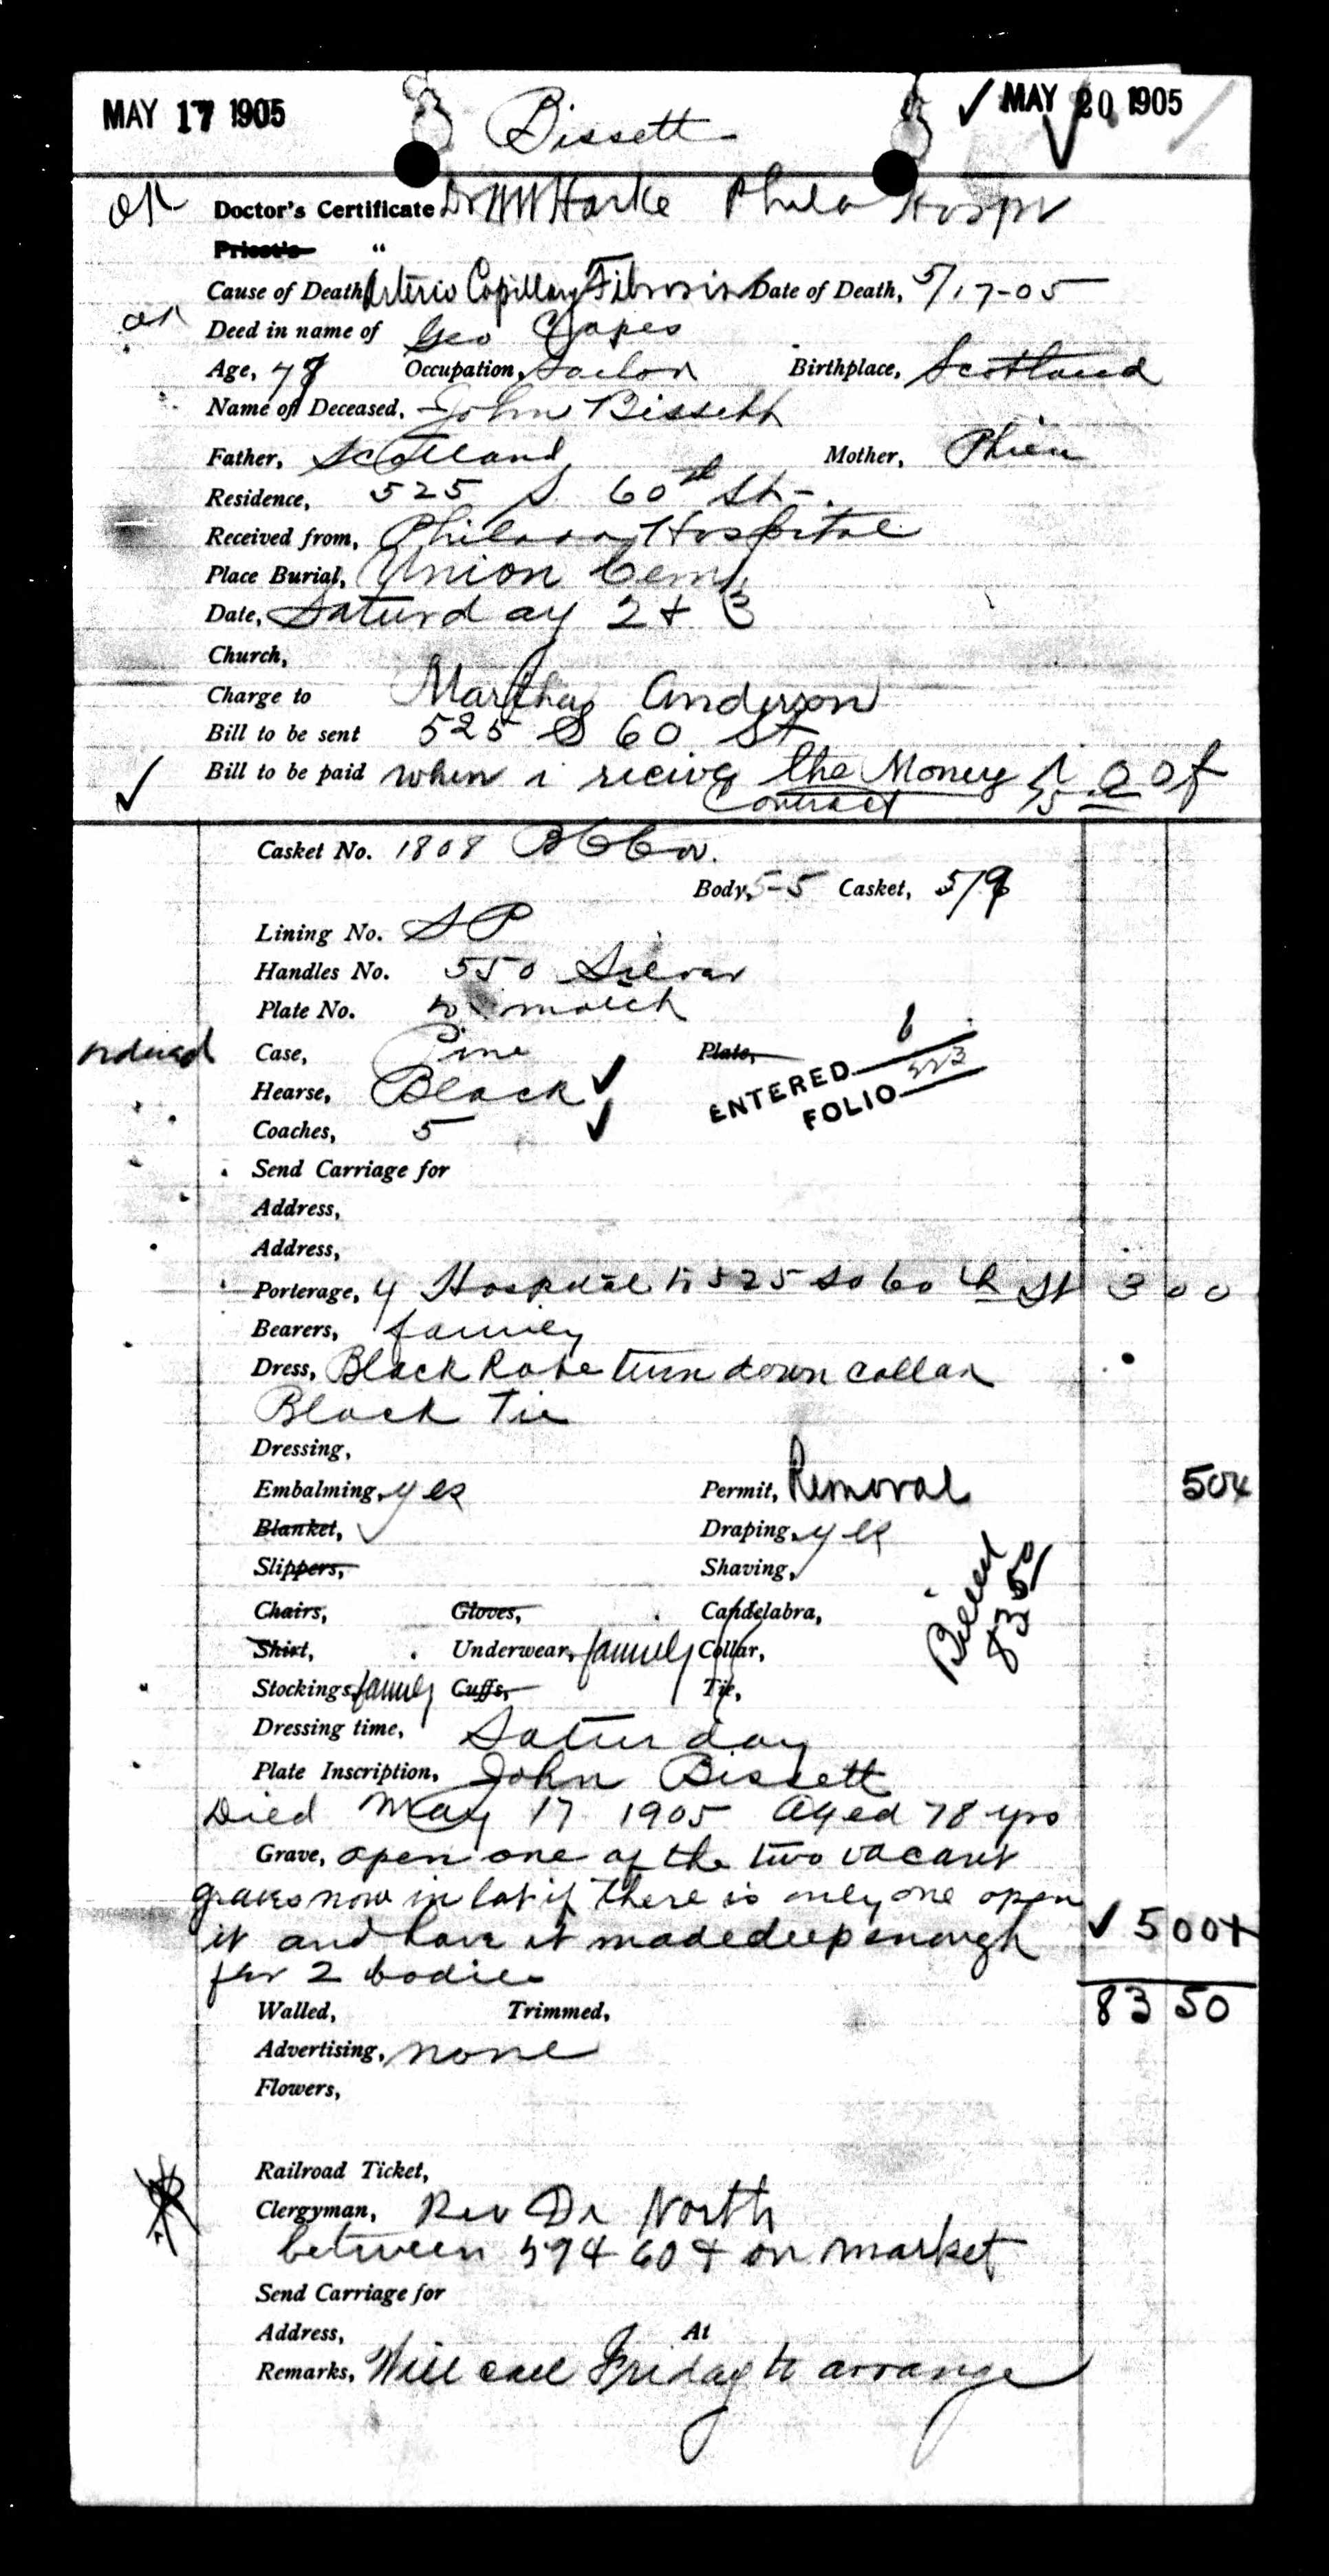 MAY 17 1905 Bissett MAY 20 1905
OK Doctor's Certificate Dr W W Harke Phila Hospt
Priest's "
Cause of Death, Arterio Capillary Fibrosis Date of Death, 5/17-05
OK Deed in name of Geo
Age, 78 Occupation, Sailor Birthplace, Scotland
Name of Deceased, John Bissett
Father, Scotland Mother,
Residence, 525 S 60th St.
Received from, Hospital
Place Burial, Union Cem.
Date, Saturday 2 + 3
Church,
Charge to Martha Anderson
Bill to be sent 525 S 60 St
Bill to be paid when i recive the Money
Contract 75
Casket No. 1808
Body, 5-5 Casket, 5/9
Lining No. S P
Handles No. 550 Silver
Plate No. to match
ordered Case, Pine Plate,
Hearse, Black
ENTERED 6
FOLIO 223
Coaches, 5
Send Carriage for
Address,
Address,
Porterage, Hospital to 525 So 60th St 3 00
Bearers, family
Dress, Black Robe turn down collar
Black Tie
Dressing,
Embalming, yes Permit, Removal 50
Blanket, Draping, yes
Slippers, Shaving,
Chairs, Gloves, Candelabra,
Billed 83 50
Shirt, Underwear, family Collar,
Stockings, family Cuffs, Tie,
Dressing time, Saturday
Plate Inscription, John Bissett
Died May 17 1905 Aged 78 yrs
Grave, open one of the two vacant
graves now in lot if there is only one open
it and have it made deep enough 5 00
for 2 bodies
Walled, Trimmed, 83 50
Advertising, none
Flowers,
Railroad Ticket,
Clergyman, Rev Dr North
between 59 + 60 on market
Send Carriage for
Address, At
Remarks, Will call Friday to arrange